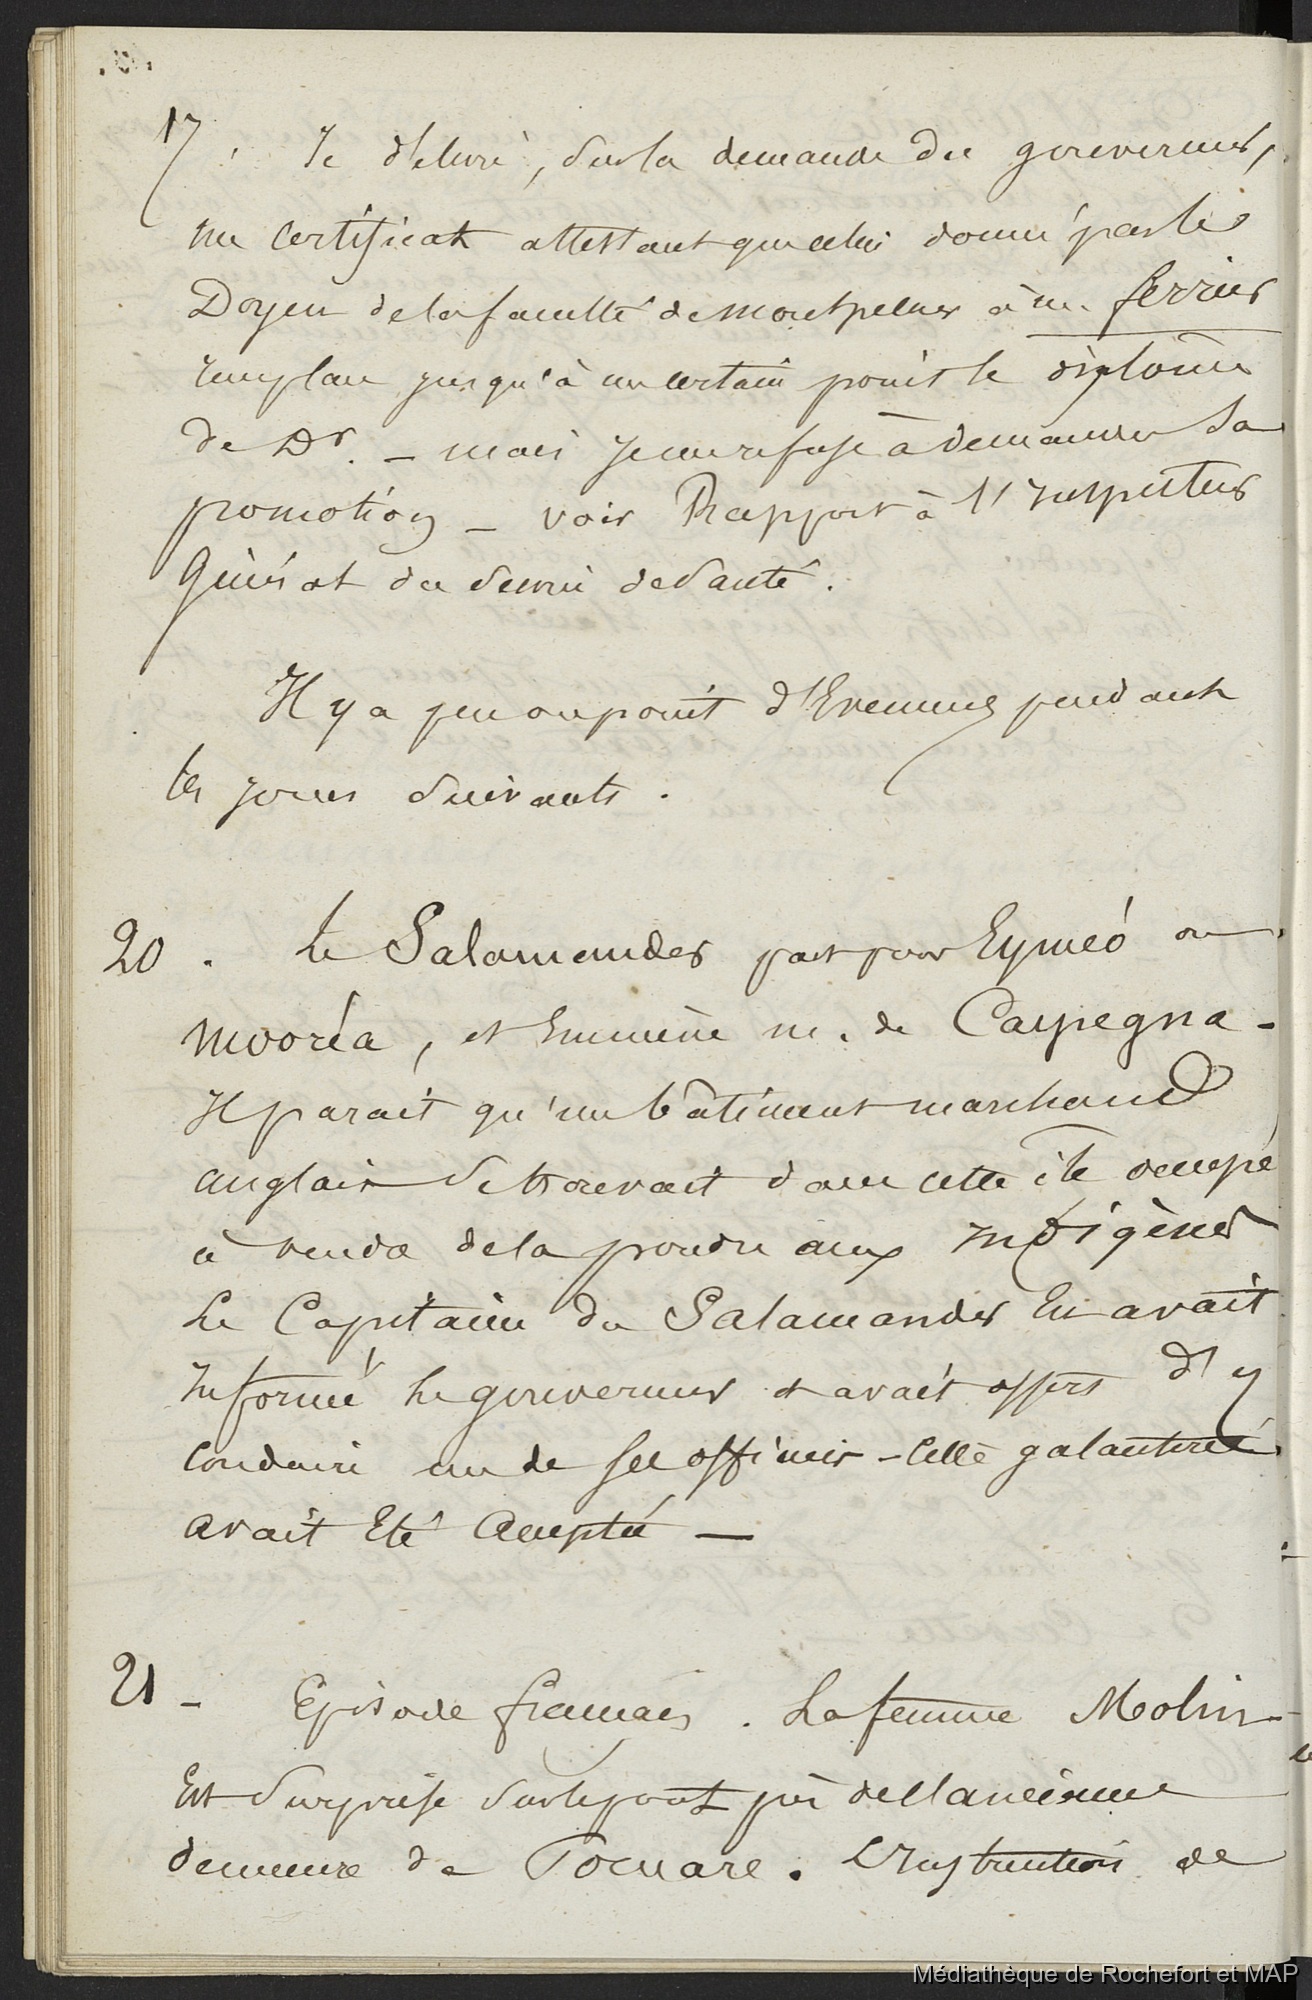 17. Je délivre, sur la demande du gouverneur,
un certificat attestant que celui donné par le
Doyen de la faculté de Montpellier à m. ferrier
remplace jusqu'à un certain point le diplôme
de Dr. - mais je me refuse à demander sa
promotion - voir Rapport à l'Inspecteur
Général du Service de Santé.
Il y a peu ou point d'Evenemens pendant
les jours suivants.
20. Le Salamander part pour Eyméo ou
Mooréa, et Emmène m. de Carpegna -
Il parait qu'un bâtiment marchand
anglais se trouvait dans cette île occupé
à vendre de la poudre aux Indigènes
Le Capitaine du Salamander En avait
Informé le gouverneur et avait offert d'y
conduire un de ses officiers - Cette galanterie
avait Eté acceptée -
21 - Episode français. La femme Molin
Est surprise sur le pont près de l'ancienne
demeure de Pomaré. L'Instruction de
Médiathèque de Rochefort et MAP